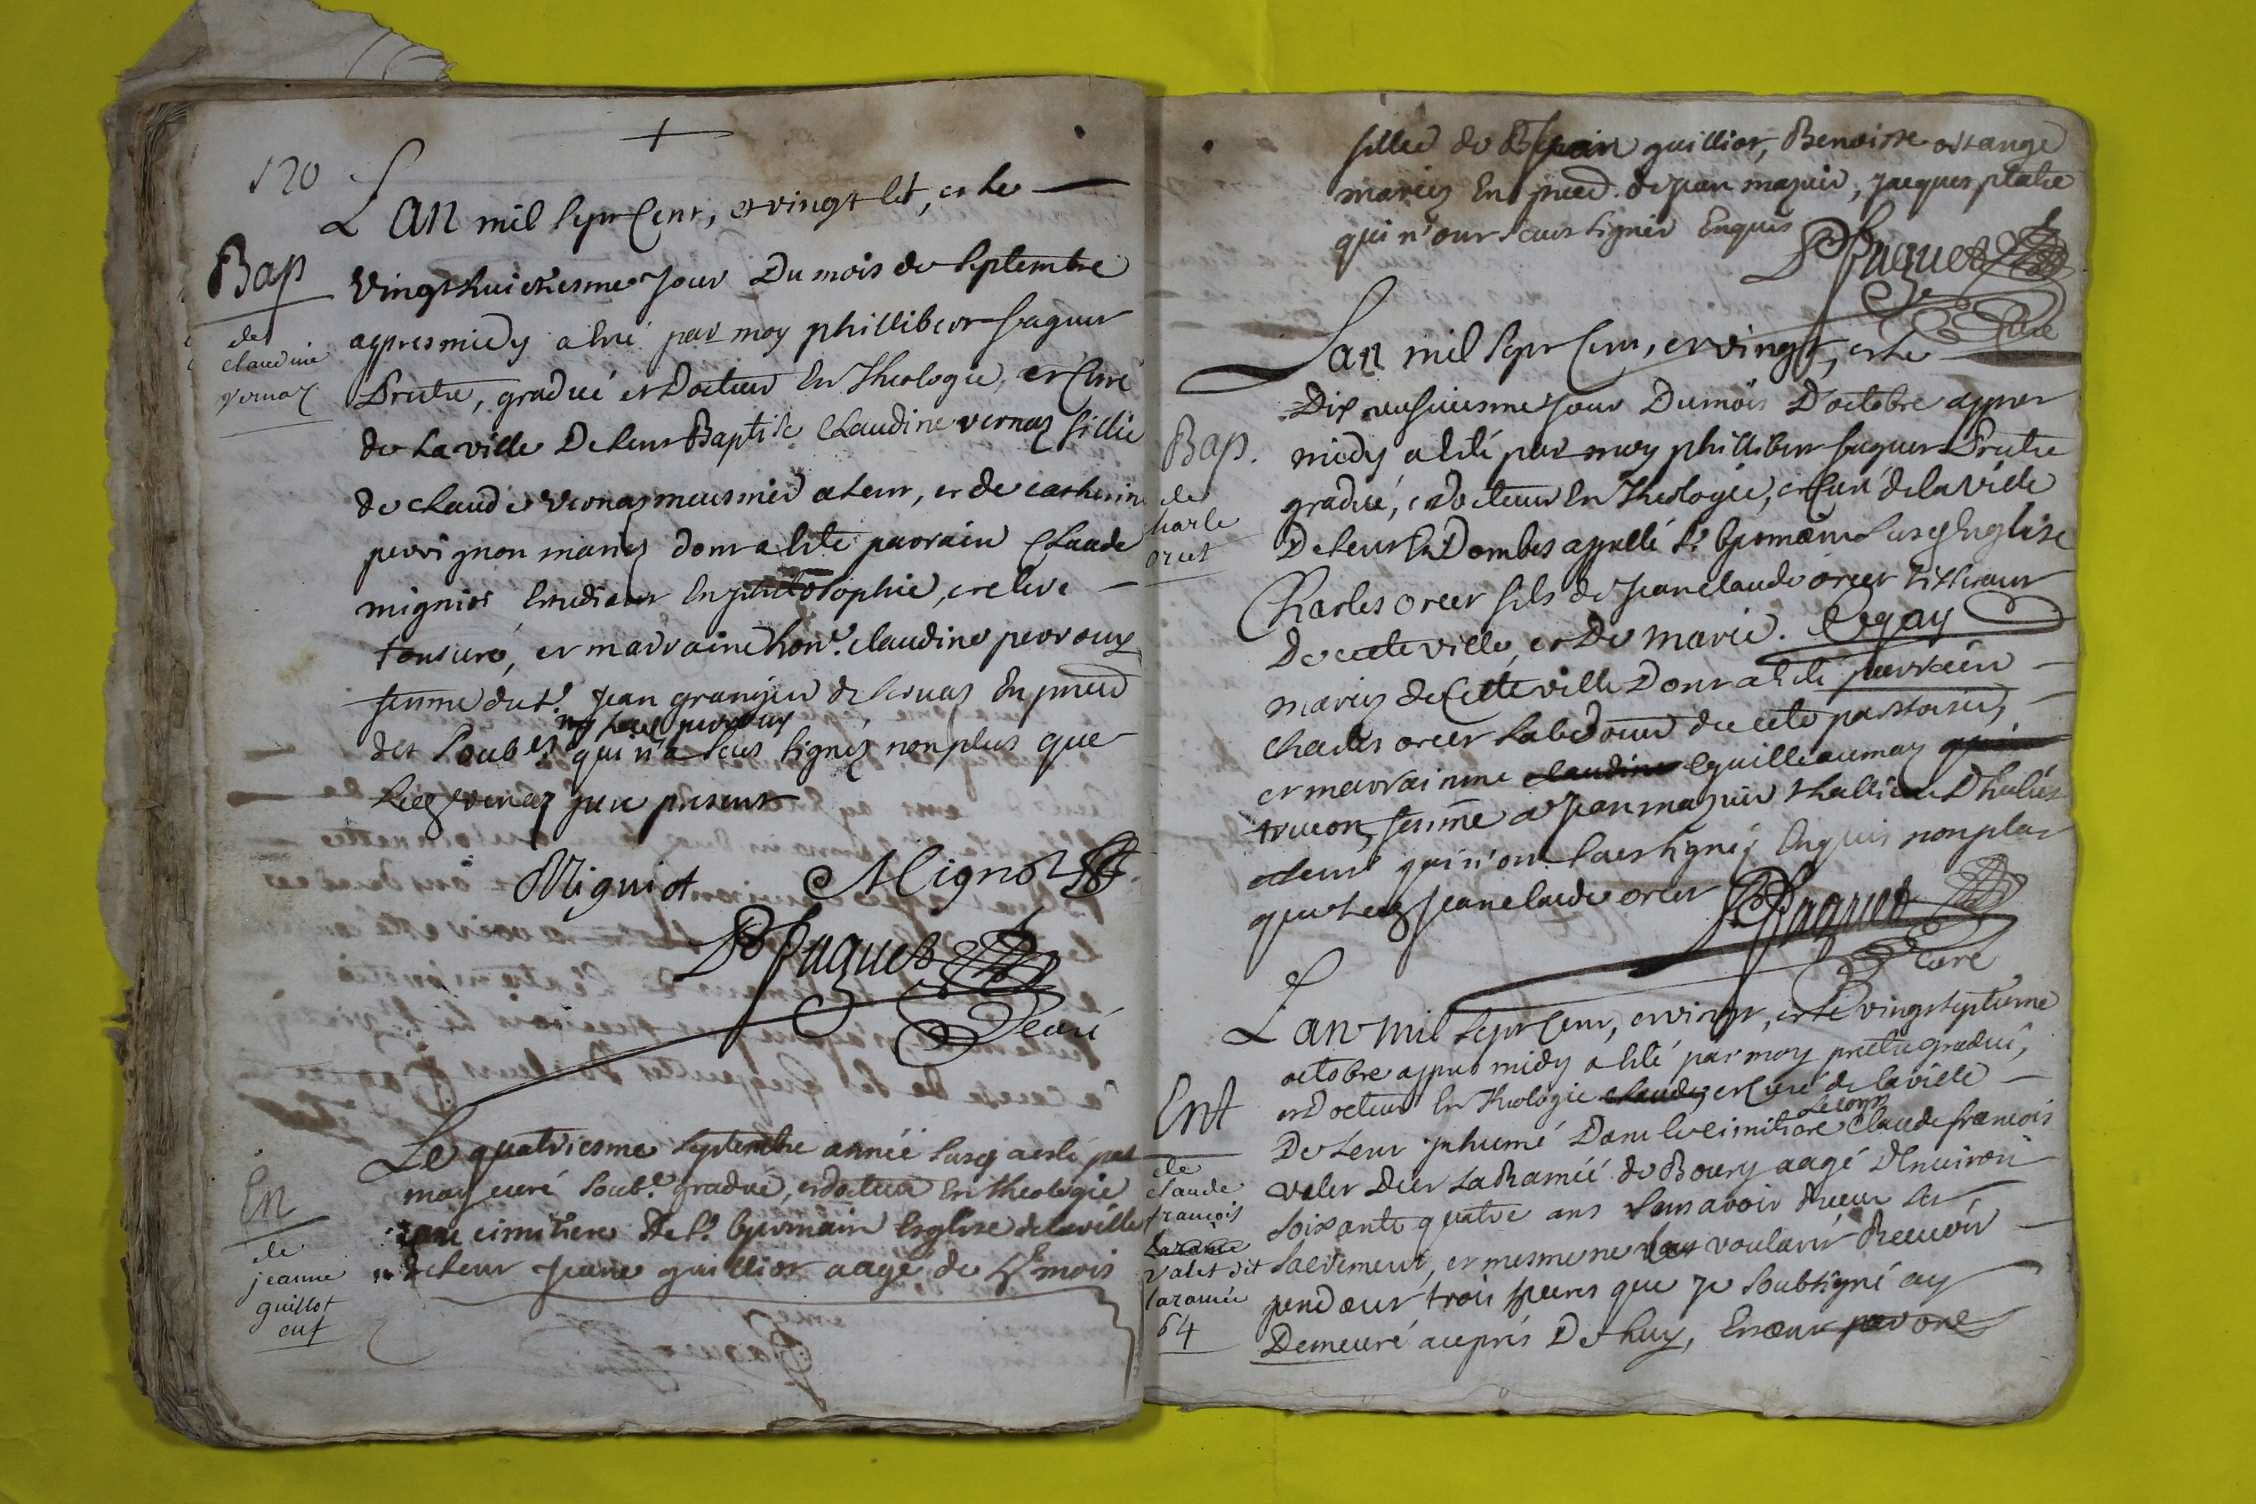 120
Lan mil sept Cent, et vingt et le
Bap
de
claudine
vernaz
vingt huictiesme Jour Du mois de septembre
appres midy a été par moy phillibert faguet
Prêtre, gradué et Docteur En Theologie, et Curé
de La ville De Leent Baptisé Claudine vernaz fillie
de claude vernaz meusnier a Leent, et de catherine
perrignon mariez dont a été parrain Claude
migniot Etudiant En philosophie, et clerc
tonsuré, et marraine hon.e claudine perroux
femme du s.r Jean granjeu de servas En pnce
des soub.es qui n'a sceus signéz non plus que
Led vernaz pere present
Migniot Mignot
P faguet
Curé
En
de
jeanne
guillot
enf
Le quatriesme septembre année susd a esté par
moy curé soub.e gradué, et docteur En theologie
cimitiere De St. Germain Esglise de la ville
de Leent Jeane guilliot aagé de mois
fillie de Jean guilliot, Benoiste estange
mariez En pnce de Jean mazuir, Jacques platre
qui n'ont sceus signer Enquis
P faguet
Curé
Lan mil sept Cent, et vingt, et Le
Bap.
de
charle
orcet
Dix neufuiesme Jour Du mois D'octobre appres
midy a été par moy phillibert faguet Prêtre
gradué, Docteur En Theologie, et Curé de la ville
De Leent En Dombes appellé St. Germain Susd Englise
Charles orcet fils de Jean claude orcet tisserant
De cette ville, et De marie. Legay
mariez de Cette ville Dont a été parrain
charles orcet Labour de cette parroisse,
et marrainne claudine guilleaumaz
trucon, femme a Jean mazuir
a Leent qui n'ont sceus signéz Enquis non plus
que Led Jean claude orcet P faguet
Curé
Lan mil sept Cent, et vingt, et Le vingt septieme
octobre appres midy a été par moy prêtre gradué,
et Docteur En Theologie claude, et Curé de la ville
Ent
de
claude
francois
Laramé
valet dit
laramée
64
De Leent Inhumé Dans Le cimitiere Le corps Claude francois
valet Dit La Ramée de Bourg aagé D'Environ
soixante quatre ans sans avoir Receu Les
sacrement, et mesme ne Les voulant Recevoir
pendant trois heures que Je soubsigné ay
Demeuré aupres De Luy,